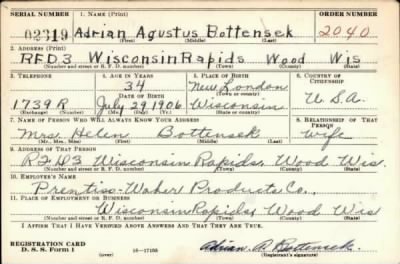 SERIAL NUMBER 1. NAME (Print) ORDER NUMBER
02319 Adrian Agustus Bottensek 2040
2. ADDRESS (Print)
RFD3 Wisconsin Rapids Wood Wis
(Number and street or R. F. D. number) (Town) (County) (State)
3. TELEPHONE 4. AGE IN YEARS 5. PLACE OF BIRTH 6. COUNTRY OF CITIZENSHIP
34 New London
DATE OF BIRTH (Town or county)
1739 R July 29 1906 Wisconsin U.S.A.
(Exchange) (Number) (Mo.) (Day) (Yr.) (State or country)
7. NAME OF PERSON WHO WILL ALWAYS KNOW YOUR ADDRESS 8. RELATIONSHIP OF THAT PERSON
Mrs. Helen Bottensek wife
(Mr., Mrs., Miss) (First) (Middle) (Last)
9. ADDRESS OF THAT PERSON
RFD3 Wisconsin Rapids, Wood Wis.
(Number and street or R. F. D. number) (Town) (County) (State)
10. EMPLOYER'S NAME
Prentiss-Waber Products Co.,
11. PLACE OF EMPLOYMENT OR BUSINESS
Wisconsin Rapids, Wood Wis
(Number and street or R. F. D. number) (Town) (County) (State)
I AFFIRM THAT I HAVE VERIFIED ABOVE ANSWERS AND THAT THEY ARE TRUE.
REGISTRATION CARD
D. S. S. Form 1 (over) 16-17105 Adrian A Bottensek
(Registrant's signature)